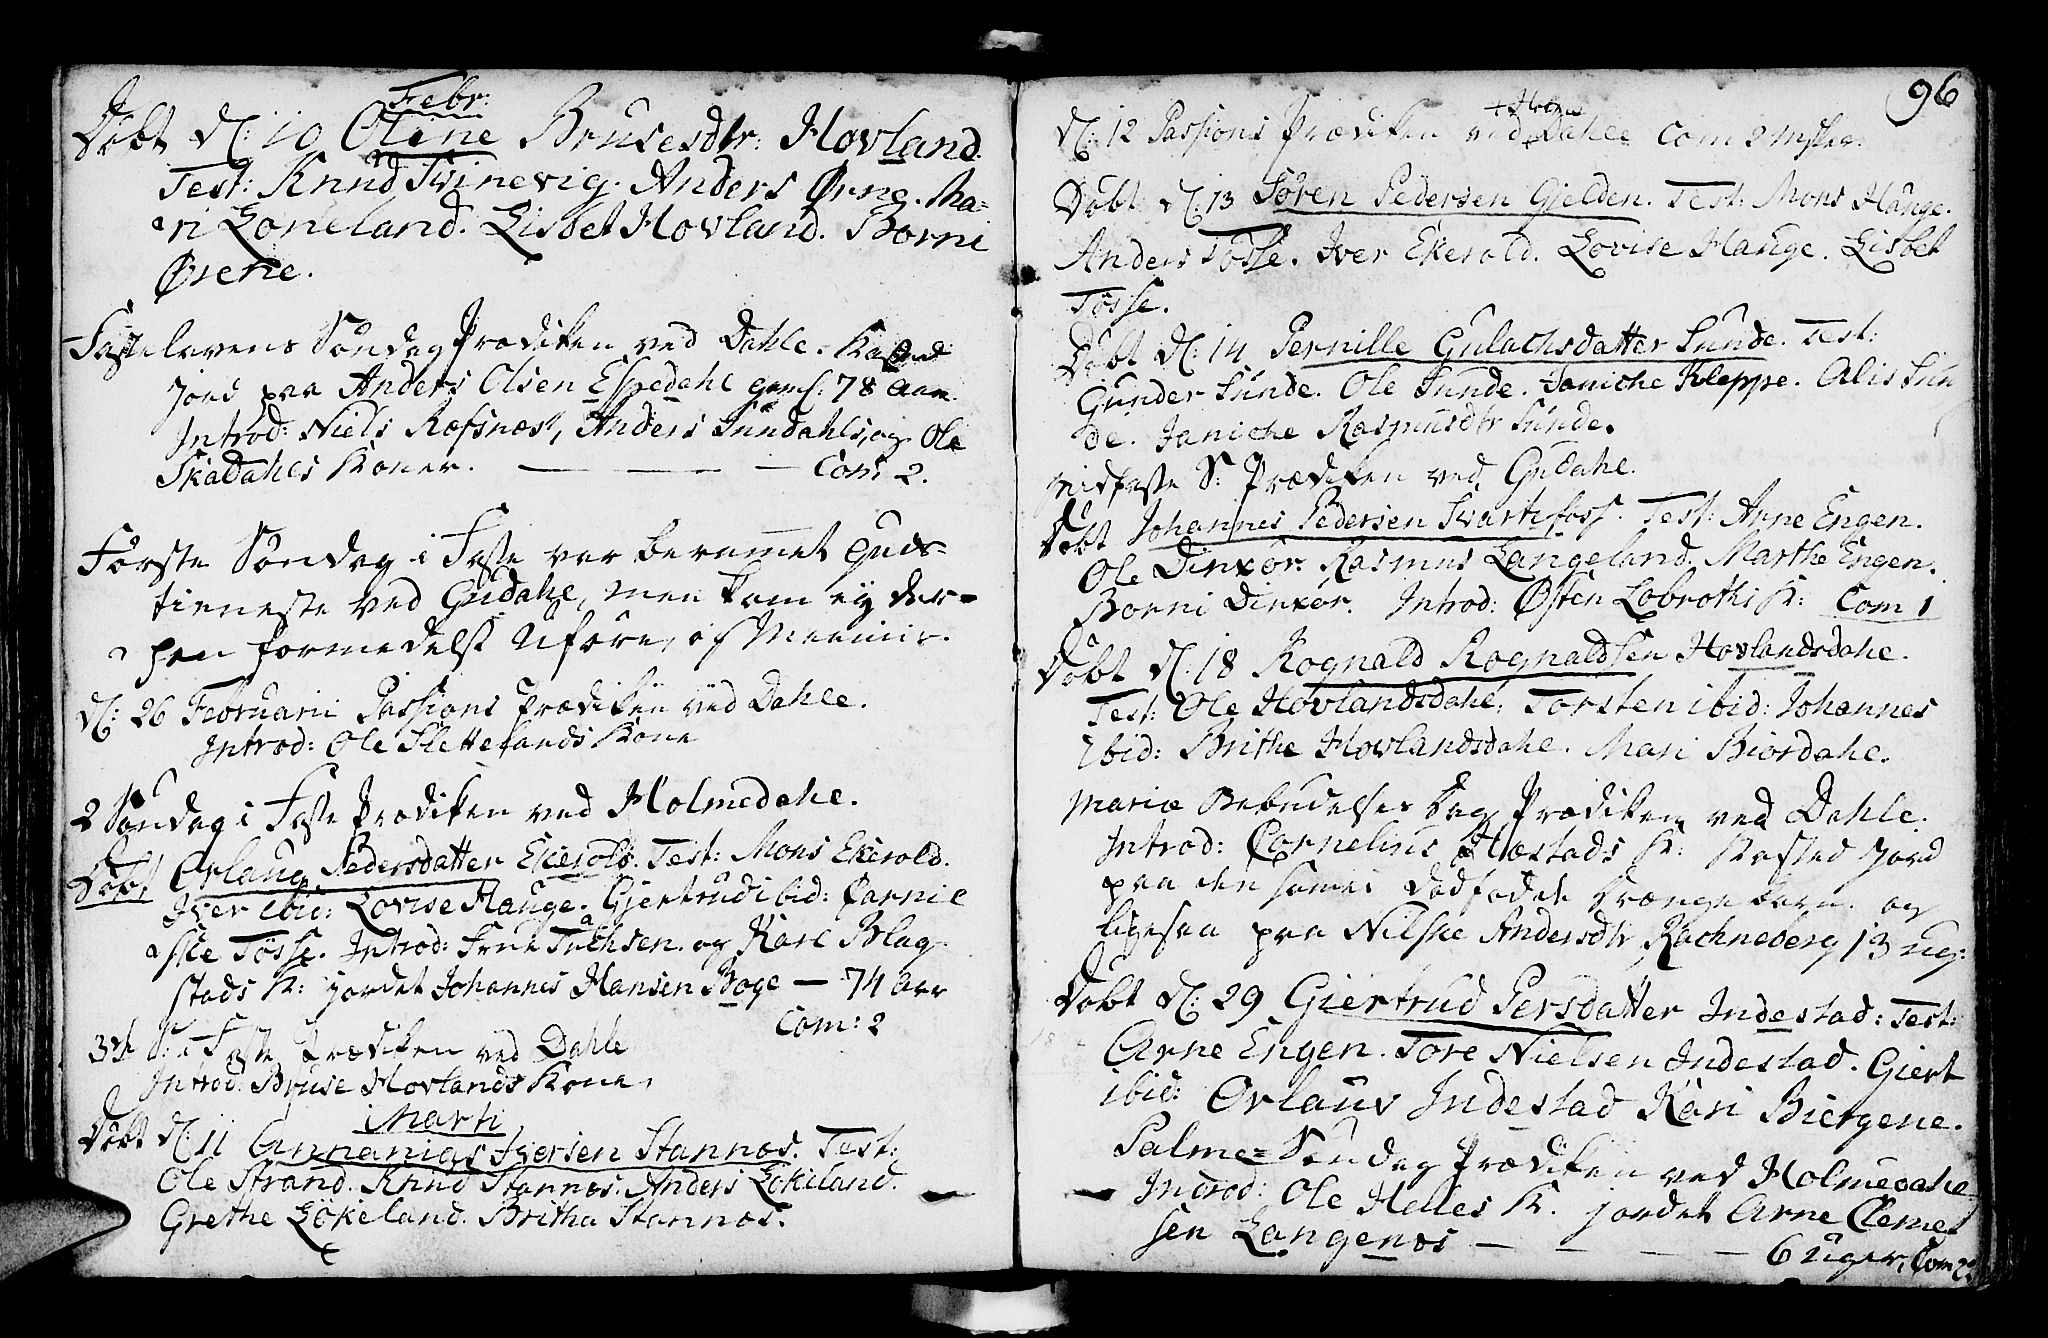 Febr:
Døbt d: 10 Oline Brusesdtr: Hovland.
Test: Knud Svinevig. Anders Ørne. Ma-
ri Loneland. Lisbet Hovland. Borni
Ørene.
Fastelavens Søndag Prædiken ved Dahle. Kasted
Jord paa Anders Olsen Espedahl gaml: 78 Aar.
Introd: Niels Refsnæs, Anders Sundahls, og Ole
Skadahls Koner. — — — Com: 2.
Første Søndag i Faste var berammet Guds-
tieneste ved Gudahl, men kom ey der-
hen formedelst Uføre, og
d: 26 Februarii Passions Prædiken ved Dahle.
Introd: Ole Slettelands Kone
2 Søndag i Faste Prædiken ved Holmedahl.
Døbt Orlaug Pedersdatter Ekerold. Test: Mons Ekerold.
Iver ibid: Lovise Hauge. Giertrud ibid:
Tøsse. Introd: Frue Tuchsen. og Karl Blag-
stads K: jordet Johannes Hansen Boge — 74 Aar
Com: 2
3die S: i Faste Prædiken ved Dahle
Introd: Bruse Hovlands Kone.
Marti
Døbt d: 11 Annanias Iversen Stannæs. Test:
Ole Strand. Knud Stannæs. Anders Løkeland.
Grethe Løkeland. Britha Stannæs.
96
d: 12 Passions Prædiken ved Dahle Com 2 msker.
Døbt d: 13 Søren Pedersen Gjelden. Test: Mons Hauge.
Anders Tøsse. Iver Ekerold. Lovise Hauge. Lisbet
Tøsse.
Døbt d: 14 Pernille Gulachsdatter Sunde. Test:
Gunder Sunde. Ole Sunde. Janiche Kleppe. Alis Sun
de. Janiche Rasmusdtr Sunde.
Midfaste S: Prædiken ved Gudahl.
Døbt Johannes Pedersen Svartefoss. Test: Arne Engen.
Ole Dinxør. Rasmus Langeland. Marthe Engen.
Borni Dinxør. Introd: Østen Lobroths K: Com 1
Døbt d: 18 Rognald Rognaldsen Hovlandsdahl.
Test: Ole Hovlandsdahl. Torsten ibid: Johannes
ibid: Brithe Hovlandsdahl. Mari Biordahl.
Mariæ Bebudelses Dag Prædiken ved Dahle.
Introd: Cornelius Hæstads K: Kasted Jord
paa den sammes dødfødde Drænge barn. og
ligesaa paa Nilske Andersdtr Rachneberg 13 Ug:
Døbt d: 29 Giertrud Persdatter Indestad: Test:
Arne Engen. Tore Nielsen Indestad. Giert
ibid: Orlaug Indestad Kari Biergene.
Palme-Søndag Prædiken ved Holmedahl
Introd: Ole Helles K. jordet Arne Clemet
sen Langenæs — — — — 6 Uger, Com 2.